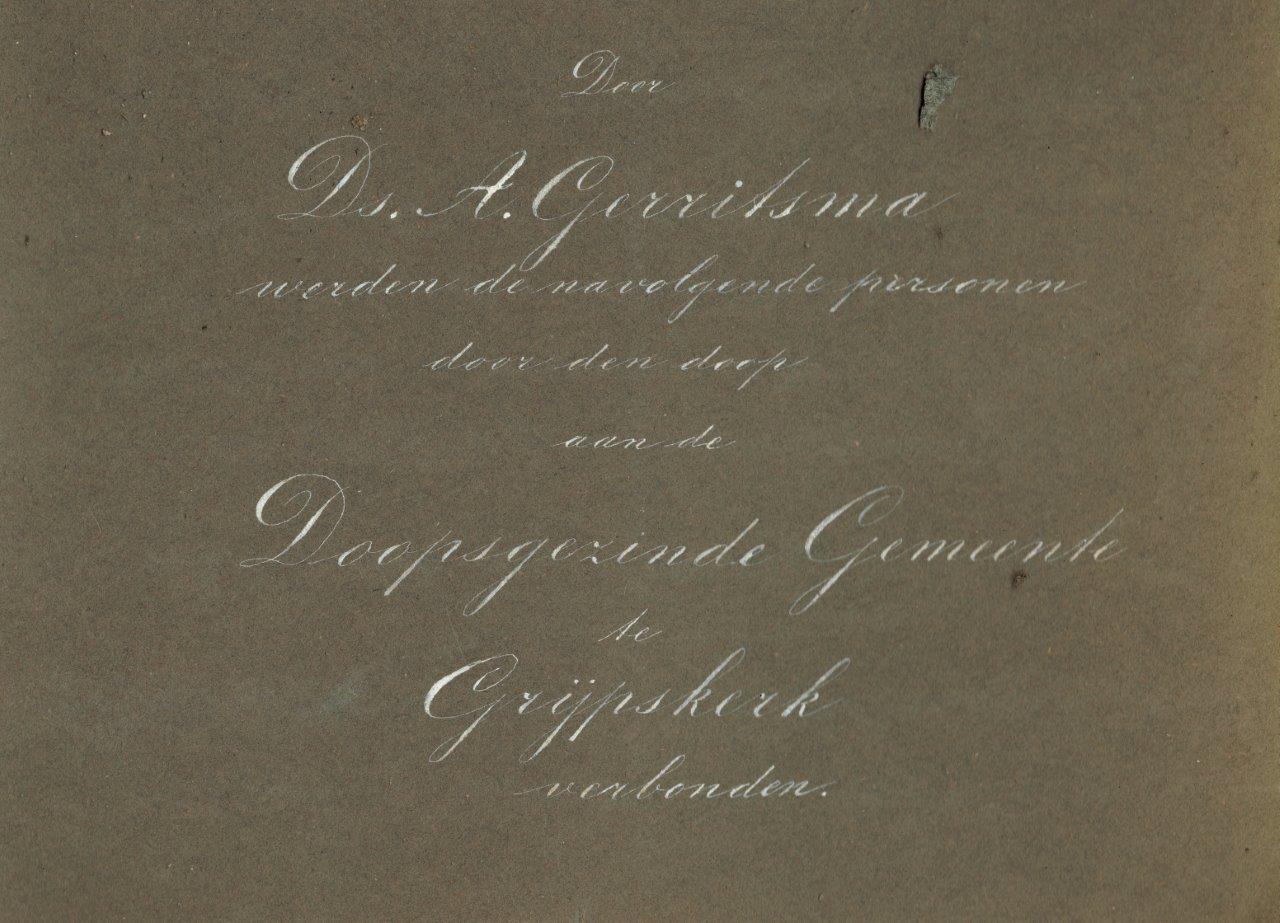 Door
Ds. A. Gerritsma
werden de navolgende personen
door den doop
aan de
Doopsgezinde Gemeente
te
Grijpskerk
verbonden.